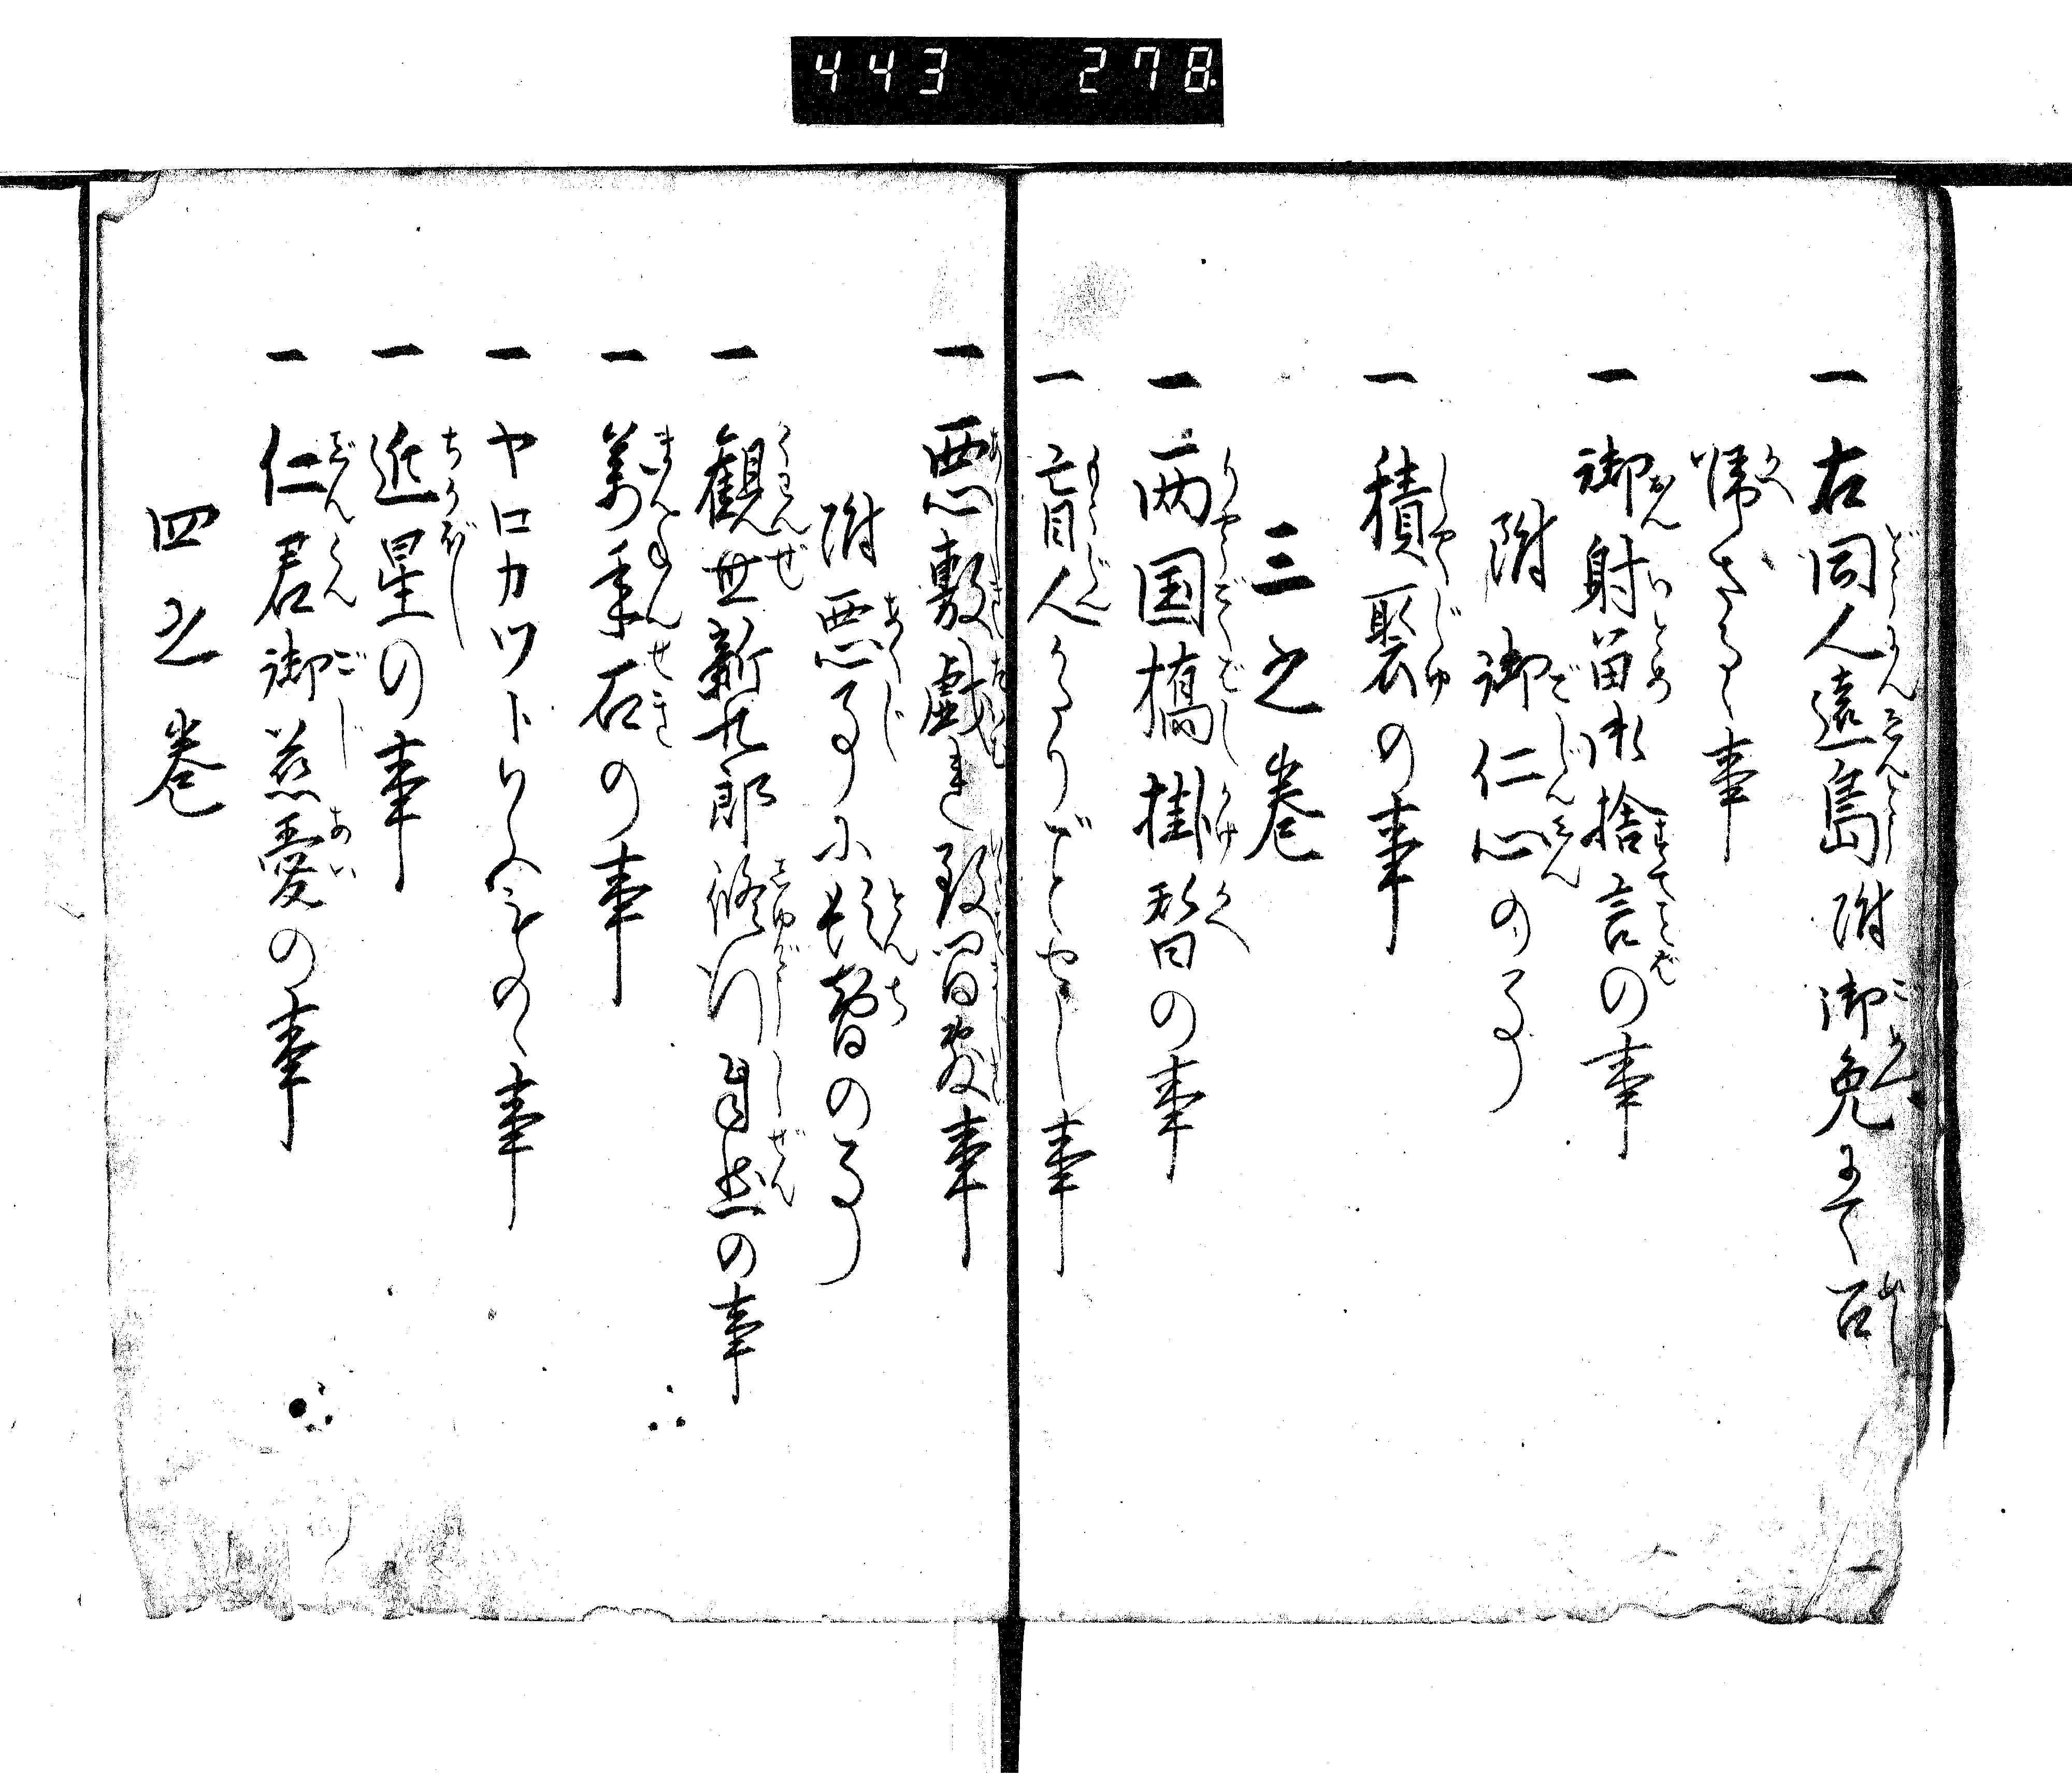 443 278
一 右同人遠島附御免にて召
帰さるゝ事
一 御射留水捨言の事
附御仁心の事
一 積聚の事
三之巻
一 両国橋掛替の事
一 盲人かたりごとせし事
一 悪敷戯を致間敷事
附悪事に頓智の事
一 観世新九郎修行自然の事
一 万年石の事
一 ヤロカツトいふもの事
一 近星の事
一 仁君御慈愛の事
四之巻